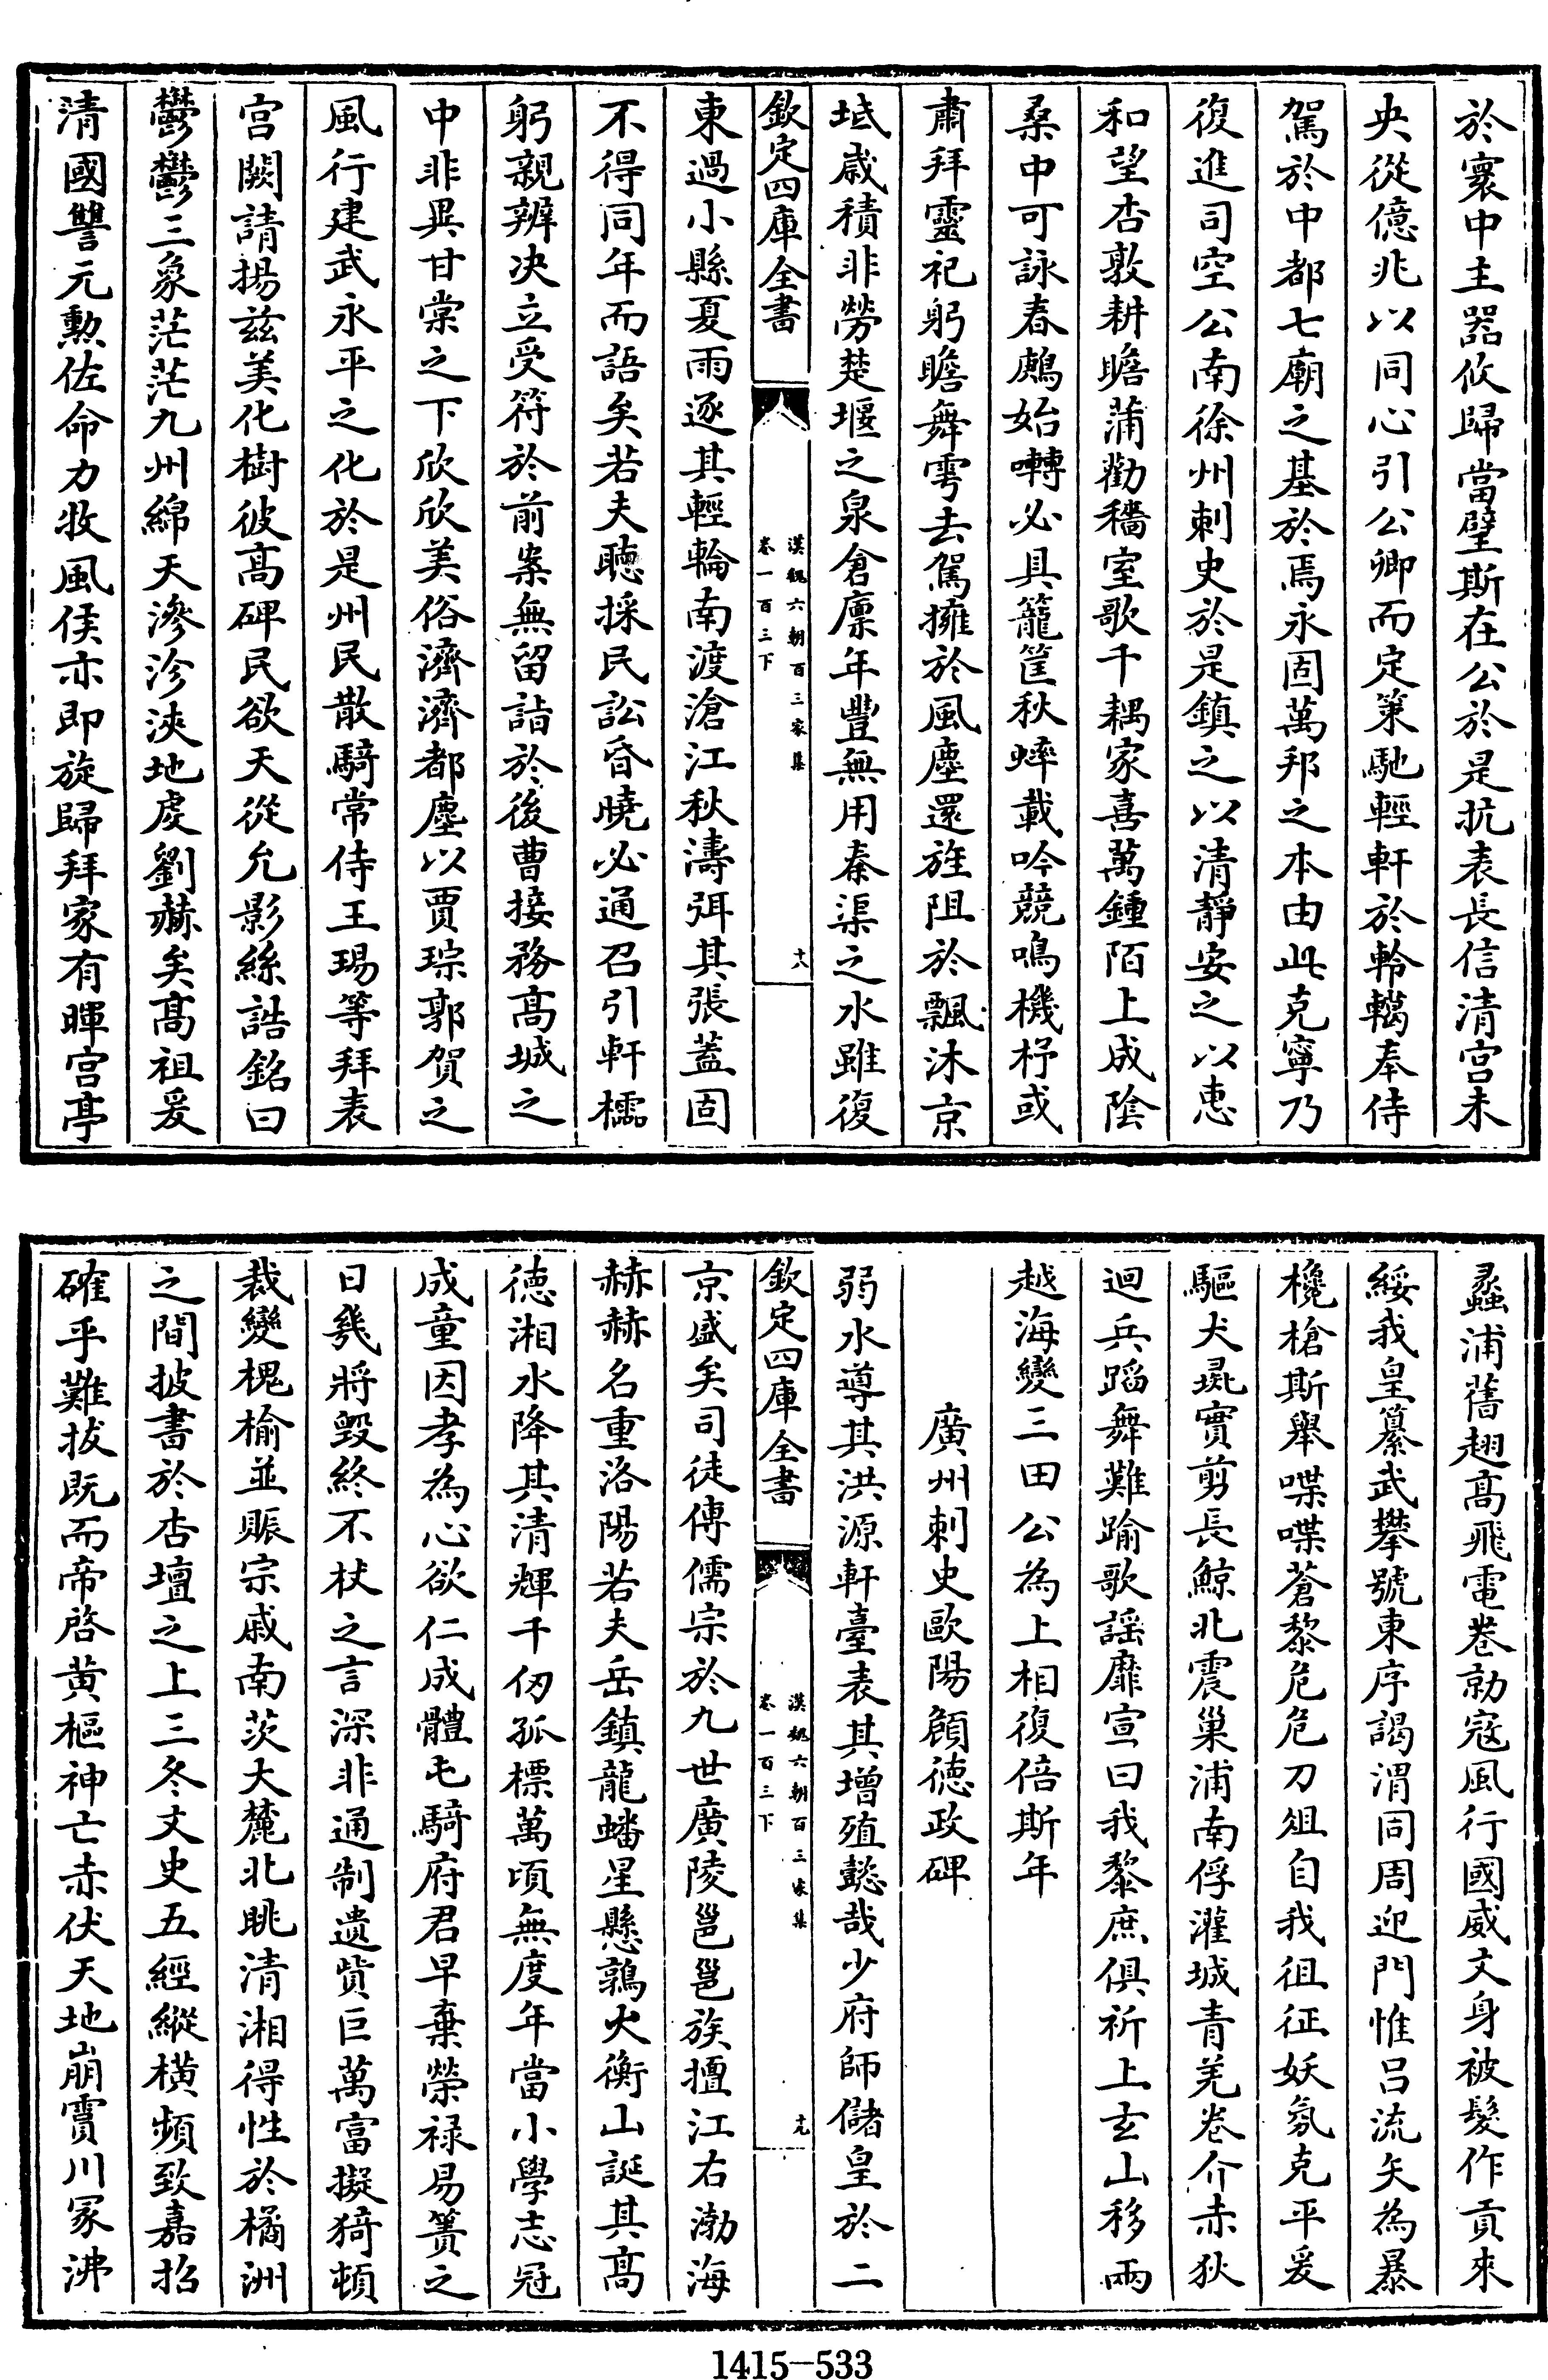 於寰中主器攸歸當璧斯在公於是抗表長信清宫未
央從億兆以同心引公卿而定策馳輕軒於軨轕奉侍
駕於中都七廟之基於焉永固萬邦之本由此克寧乃
復進司空公南徐州刺史於是鎮之以清靜安之以恵
和望杏敦耕瞻蒲勸穡室歌千耦家喜萬鍾陌上成陰
桑中可詠春鷓始囀必具籠筐秋蟀載吟競鳴機杼或
肅拜靈祀躬瞻舞雩去駕擁於風塵還旌阻於飄沐京
坻歳積非勞楚堰之泉倉廪年豐無用秦渠之水雖復
欽定四庫全書
漢魏六朝百三家集
卷一百三下
十八
東過小縣夏雨逐其輕輪南渡滄江秋濤弭其張蓋固
不得同年而語矣若夫聴採民訟昏曉必通召引軒檽
躬親辨决立受符於前案無留諙於後曹接務髙城之
中非異甘棠之下欣欣美俗濟濟都塵以賈琮郭賀之
風行建武永平之化於是州民散騎常侍王瑒等拜表
宫闕請揚兹美化樹彼髙碑民欲天從允影絲誥銘曰
鬱鬱三象茫茫九州綿天滲沴浹地虔劉赫矣髙祖爰
清國讐元勲佐命力牧風侯亦即旋歸拜家有暉宫亭
蠡浦舊翅髙飛電巻勍寇風行國威文身被髪作貢來
綏我皇纂武攀號東序謁渭同周迎門惟吕流矢為暴
欃槍斯舉喋喋蒼黎危危刀俎自我徂征妖氛克平爰
驅犬㲋實剪長鯨北震巢浦南俘灌城青羌巻介赤狄
迴兵蹈舞難踰歌謡靡宣曰我黎庶俱祈上玄山移兩
越海變三田公為上相復倍斯年
廣州刺史歐陽頠徳政碑
弱水導其洪源軒臺表其增殖懿哉少府師儲皇於二
欽定四庫全書
漢魏六朝百三家集
卷一百三下
十九
京盛矣司徒傳儒宗於九世廣陵邕邕族擅江右渤海
赫赫名重洛陽若夫岳鎮龍蟠星懸鶉火衡山誕其髙
徳湘水降其清輝千仞孤標萬頃無度年當小學志冠
成童因孝為心欲仁成體屯騎府君早棄榮禄易簀之
日㡬將毁終不杖之言深非通制遺貲巨萬富擬猗頓
裁變槐榆並賑宗戚南茨大麓北眺清湘得性於橘洲
之間披書於杏壇之上三冬文史五經縱橫頻致嘉招
確乎難拔既而帝啓黄樞神亡赤伏天地崩霣川冢沸
1415-533